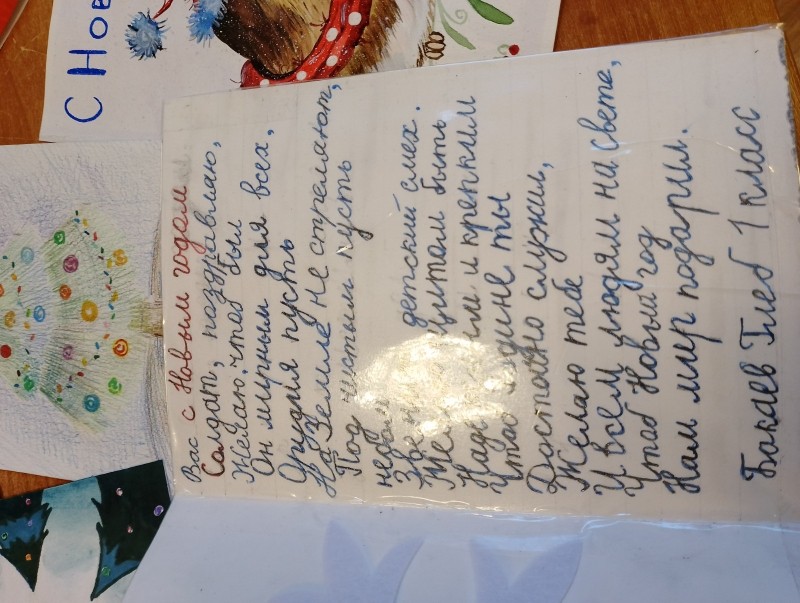 С Нов
Вас с Новым годом
Солдат, поздравляю,
Желаю чтоб был
Он мирным для всех,
Орудия пусть
На Земле не стреляют,
Под чистым пусть
небом
детский смех.
щитом быть
и крепким
Чтоб Родине ты
Достойно служил,
Желаю тебе
И всем людям на свете,
Чтоб Новый год
Нам мир подарил.
Бакаев Глеб 1 класс